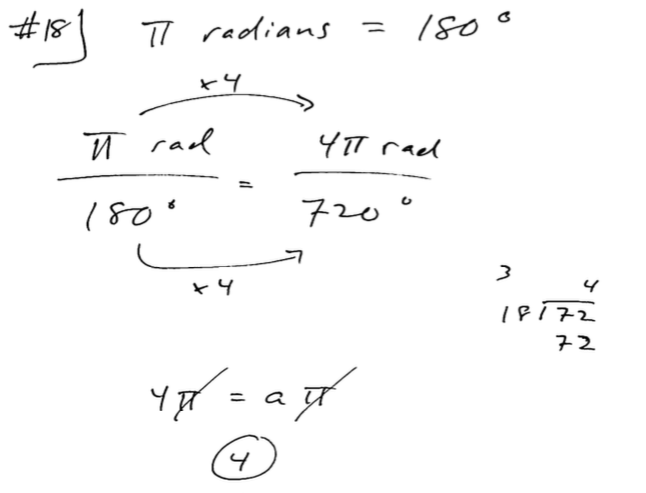 #18] π radians = 180°
×4
π rad / 180° = 4π rad / 720°
×4
3
4
18)72
72
4π = aπ
4